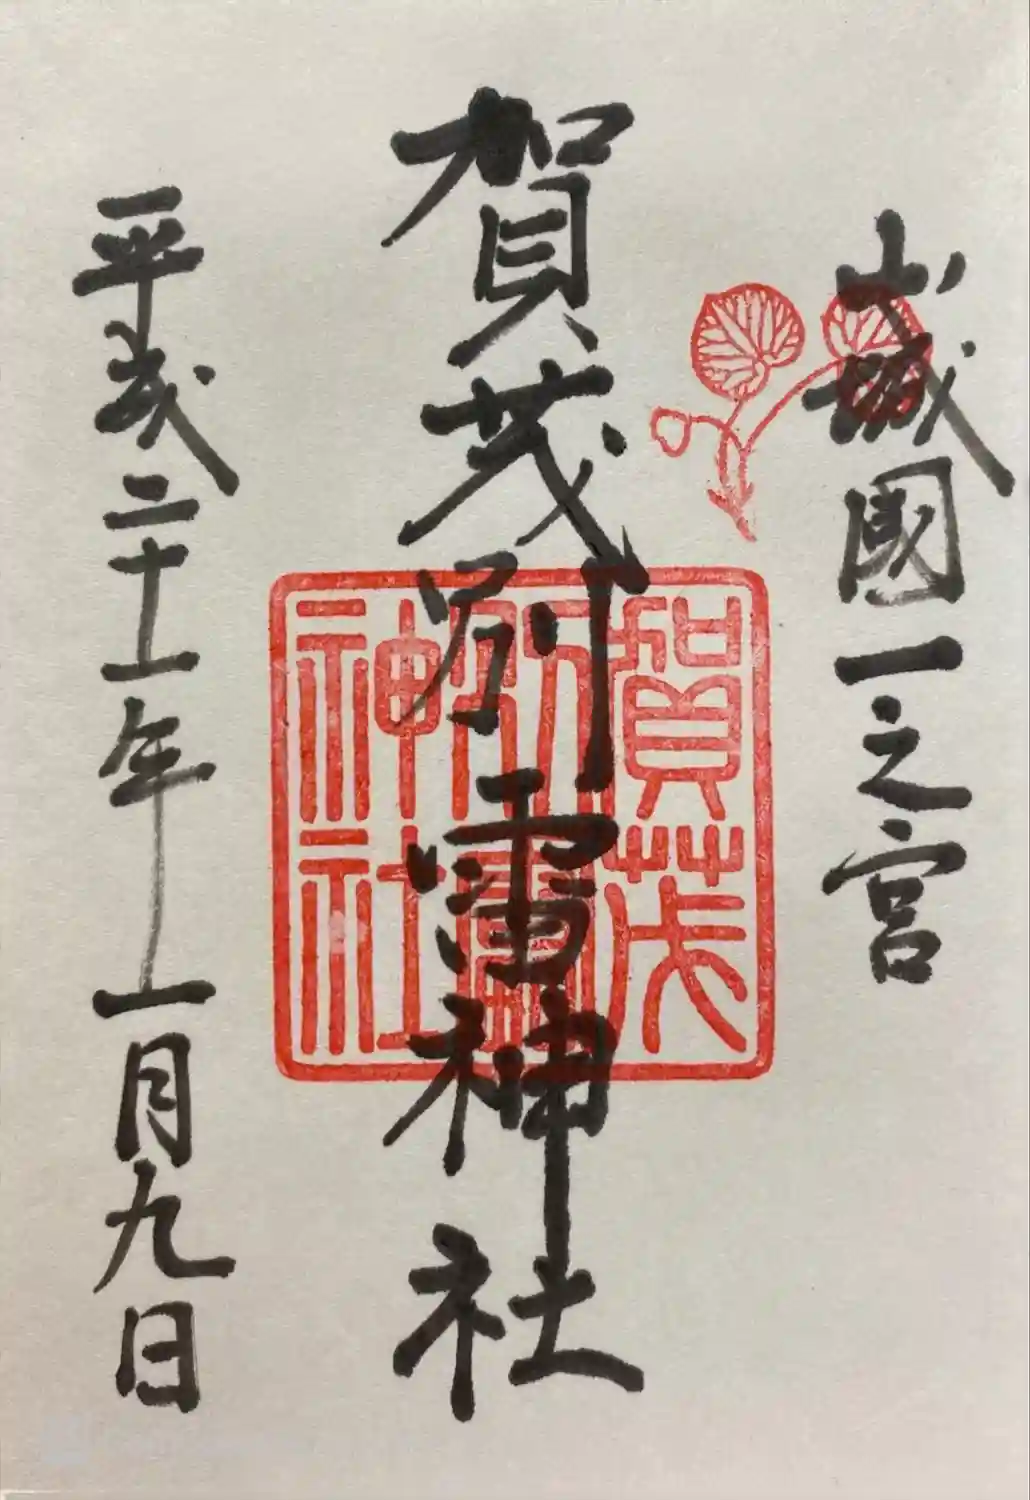 山城國一之宮
賀茂別雷神社
平成二十一年一月九日
賀茂
別雷
神社